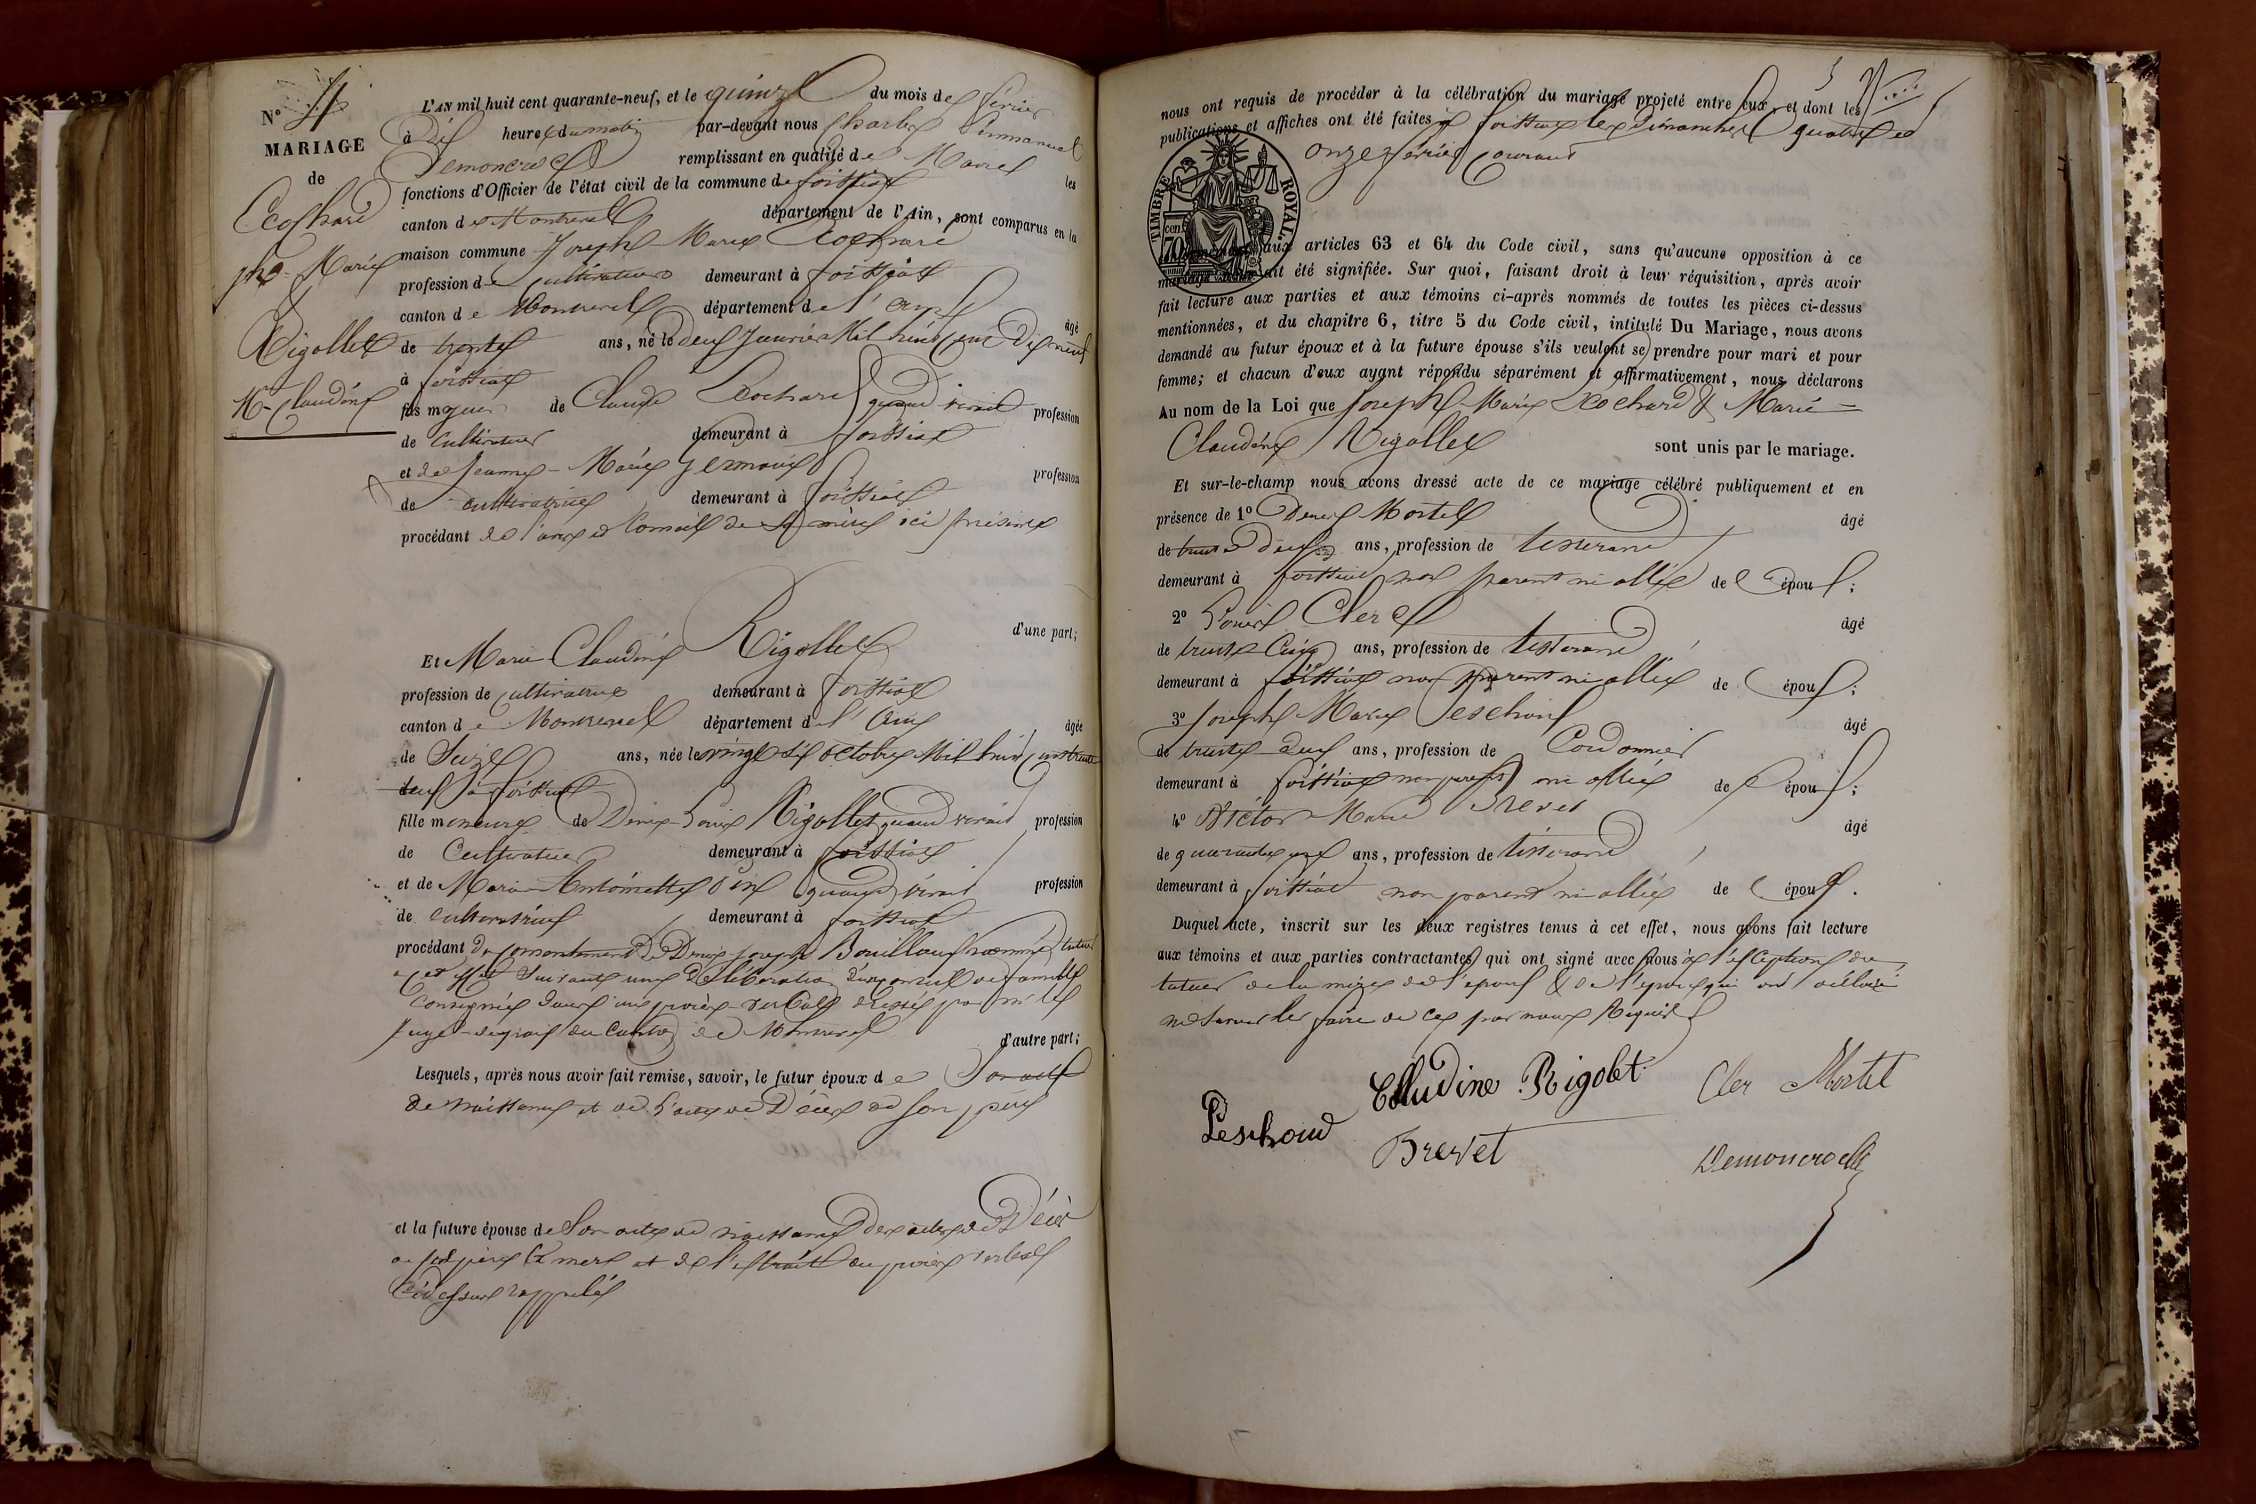 N° 4
MARIAGE
de
Ecochard
Jh Marie
&
Rigollet
Mie Claudine
L'AN mil huit cent quarante-neuf, et le quinze du mois de février
à dix heures du matin par-devant nous Charles Emmanuel
Demoncroc remplissant en qualité de Maire les
fonctions d'Officier de l'état civil de la commune de foissiat
canton de Montrevel département de l'Ain, sont comparus en la
maison commune Joseph Marie Ecochard
profession de cultivateur demeurant à foissiat
canton de Montrevel département de l'Ain âgé
de trente ans, né le deux Janvier Mil huit cent dix neuf
à foissiat
fils majeur de Claude Ecochard quand vivait profession
de cultivateur demeurant à foissiat
et de Jeanne Marie profession
de cultivatrice demeurant à foissiat
procédant de l'avis et Conseil de sa mère ici présente
d'une part;
Et Marie Claudine Rigollet
profession de cultivatrice demeurant à foissiat
canton de Montrevel département de l'Ain âgée
de Seize ans, née le vingt six octobre Mil huit cent trente
deux à foissiat
fille mineure de Denis Louis Rigollet quand vivait profession
de Cultivateur demeurant à foissiat
et de Marie Antoinette quand vivait profession
de cultivatrice demeurant à foissiat
procédant du consentement de Denis Joseph Bouilloux nommé tuteur
à cet effet Suivant une Délibération d'un conseil de famille
consignée dans un procès verbal dressé par Mr le
Juge de paix du Canton de Montrevel
d'autre part;
Lesquels, après nous avoir fait remise, savoir, le futur époux de Son acte
de naissance et de l'acte de Décès de son père
et la future épouse de Son acte de naissance des actes de Décès
de ses père & mère et de l'extrait du procès verbal
Ci dessus rappelé
nous ont requis de procéder à la célébration du mariage projeté entre eux, et dont les
publications et affiches ont été faites à foissiat les dimanches quatre et
onze février courant
TIMBRE ROYAL.
70 cen.
aux articles 63 et 64 du Code civil, sans qu'aucune opposition à ce
mariage ait été signifiée. Sur quoi, faisant droit à leur réquisition, après avoir
fait lecture aux parties et aux témoins ci-après nommés de toutes les pièces ci-dessus
mentionnées, et du chapitre 6, titre 5 du Code civil, intitulé Du Mariage, nous avons
demandé au futur époux et à la future épouse s'ils veulent se prendre pour mari et pour
femme; et chacun d'eux ayant répondu séparément et affirmativement, nous déclarons
Au nom de la Loi que Joseph Marie Ecochard & Marie
Claudine Rigollet sont unis par le mariage.
Et sur-le-champ nous avons dressé acte de ce mariage célébré publiquement et en
présence de 1° Denis Mortel âgé
de trente deux ans, profession de tisserand
demeurant à foissiat non parent ni allié de l'époux;
2° Louis Clerc âgé
de trente Cinq ans, profession de tisserand
demeurant à foissiat non parent ni allié de l'époux;
3° Joseph Marie Peschoux âgé
de trente deux ans, profession de Cordonnier
demeurant à foissiat non parent ni allié de l'époux;
4° Victor Marie Brevet âgé
de quarante ans, profession de tisserand
demeurant à foissiat non parent ni allié de l'époux.
Duquel acte, inscrit sur les deux registres tenus à cet effet, nous avons fait lecture
aux témoins et aux parties contractantes qui ont signé avec nous à l'exception du
tuteur de la mère de l'époux & de l'époux qui ont déclaré
ne savoir le faire de ce par nous Requis
Clludine Rigolet Cler Mortel
Peschoud
Brevet Demoncroc